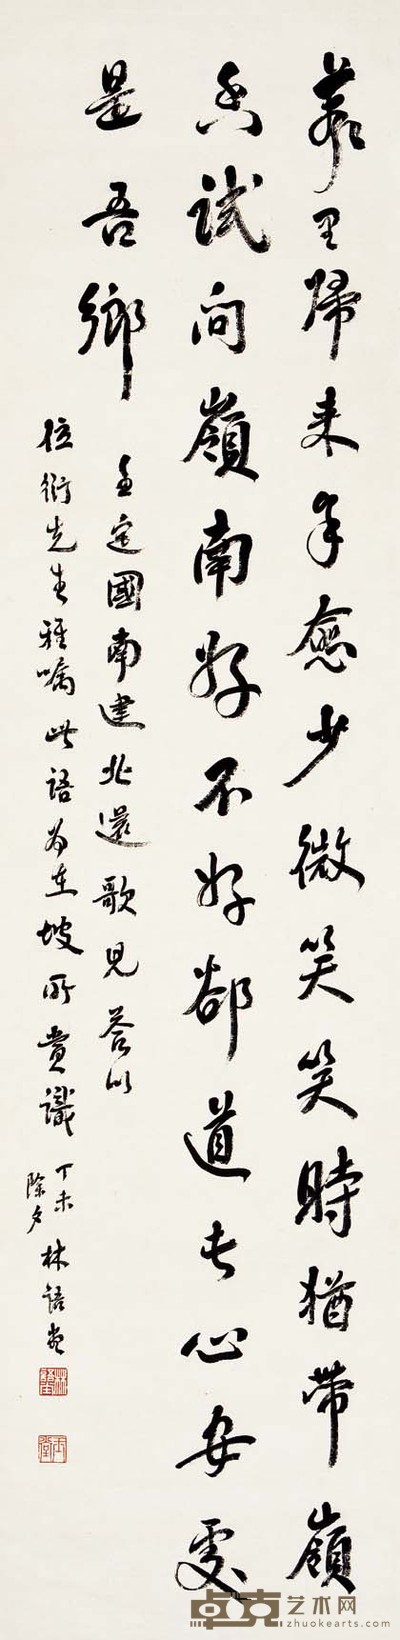 萬里歸來年愈少微笑笑時猶帶嶺
香試问嶺南好不好郤道此心安處
是吾鄉
王定國南遷北還歌兒答以
此語為東坡所賞識
位衍先生雅嘱
丁未
除夕
林語堂
卓克艺术网
zhuokearts.com